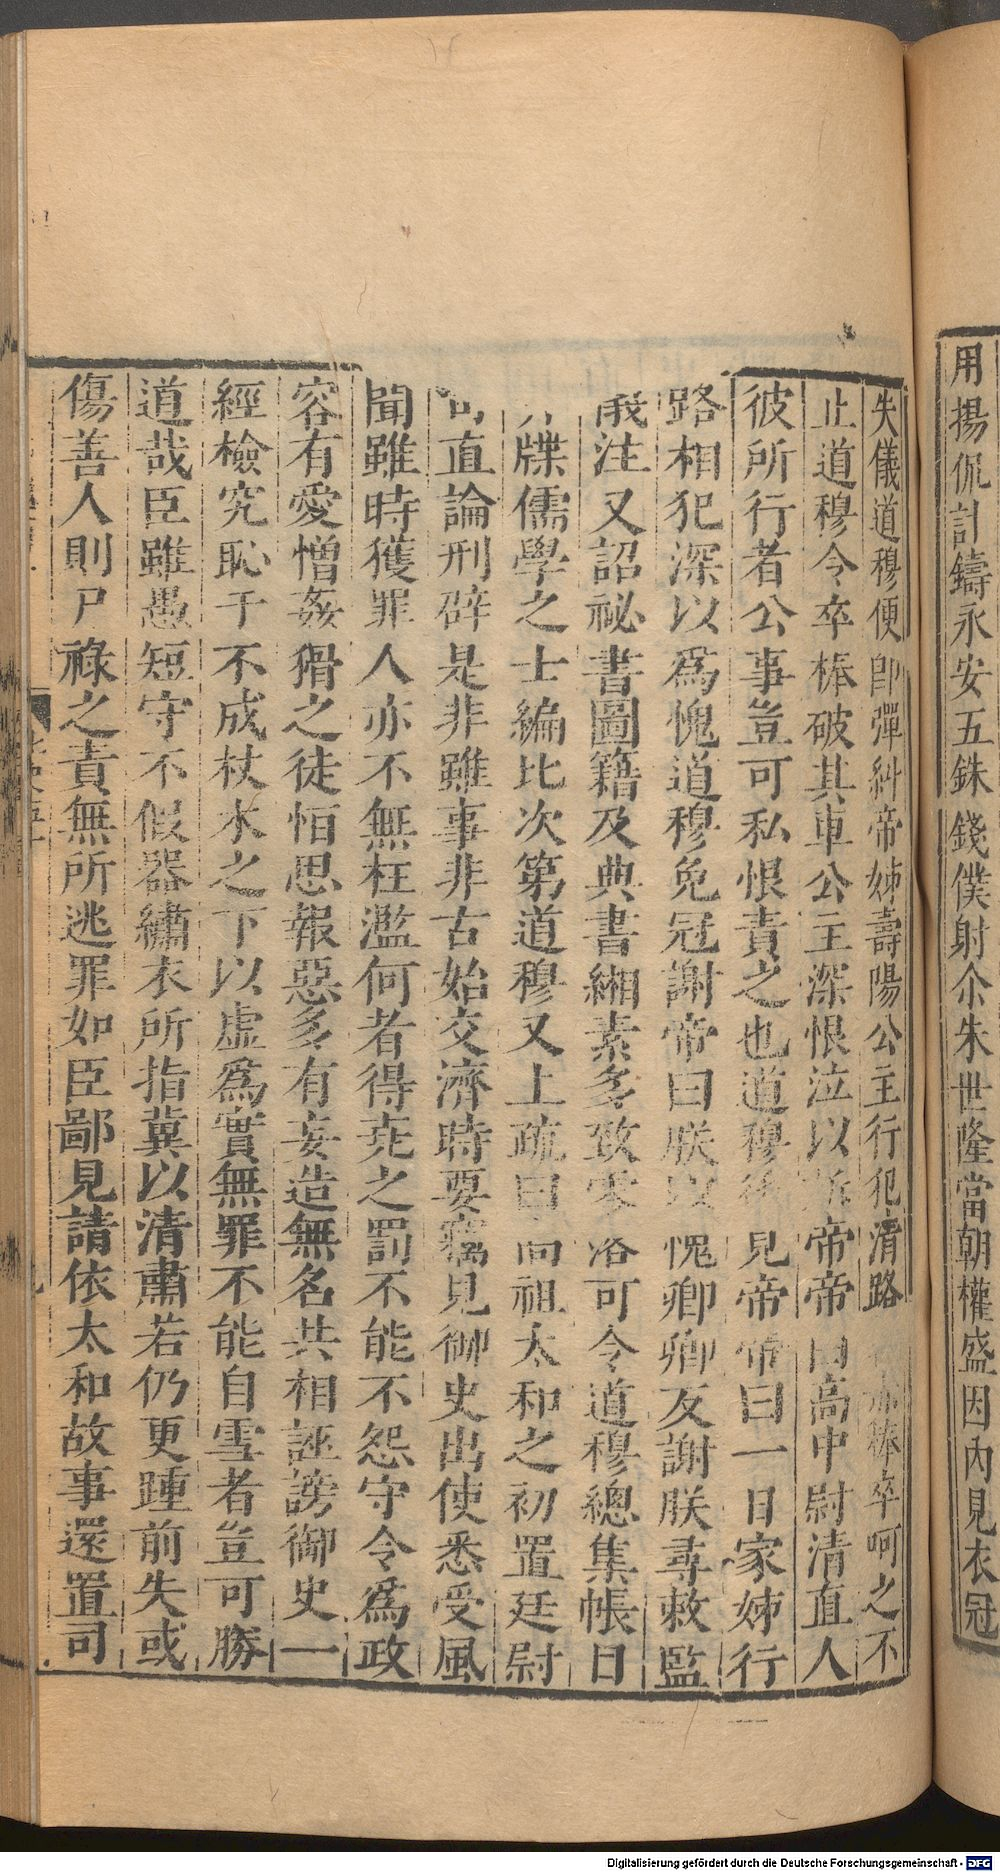 用揚侃計鑄永安五銖錢僕射尒朱世隆當朝權盛因內見衣冠
失儀道穆便卽彈糾帝姊壽陽公主行犯清路赤棒卒呵之不
止道穆令卒棒破其車公主深恨泣以訴帝帝曰高中尉清直人
彼所行者公事豈可私恨責之也道穆後見帝帝曰一日家姊行
路相犯深以爲愧道穆免冠謝帝曰朕以愧卿卿反謝朕尋敕監
儀注又詔祕書圖籍及典書緗素多致零落可令道穆總集帳目
牒儒學之士編比次第道穆又上疏曰高祖太和之初置廷尉
司直論刑辟是非雖事非古始交濟時要竊見御史出使悉受風
聞雖時獲罪人亦不無枉濫何者得堯之罰不能不怨守令爲政
容有愛憎姦猾之徒恒思報惡多有妄造無名共相誣謗御史一
經檢究恥于不成杖木之下以虛爲實無罪不能自雪者豈可勝
道哉臣雖愚短守不假器繡衣所指冀以清肅若仍更踵前失或
傷善人則尸祿之責無所逃罪如臣鄙見請依太和故事還置司
Digitalisierung gefördert durch die Deutsche Forschungsgemeinschaft - DFG